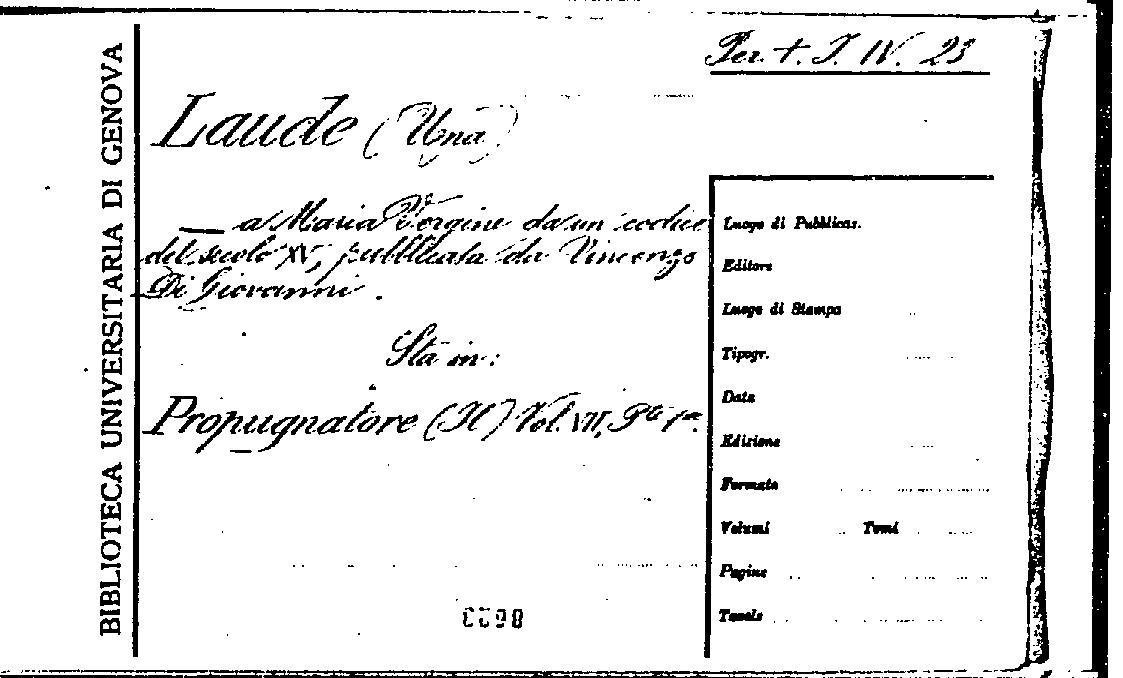 BIBLIOTECA UNIVERSITARIA DI GENOVA
Per. t. I. IV. 23
Laude (Una)
— a Maria Vergine da un codice
del secolo XV, pubblicata da Vincenzo
Di Giovanni.
Sta in:
Propugnatore (Il) Vol. VII, Pte 1a.
Luogo di Pubblicaz.
Editore
Luogo di Stampa
Tipogr.
Data
Edizione
Formato
Volumi Tomi
Pagine
Tavole